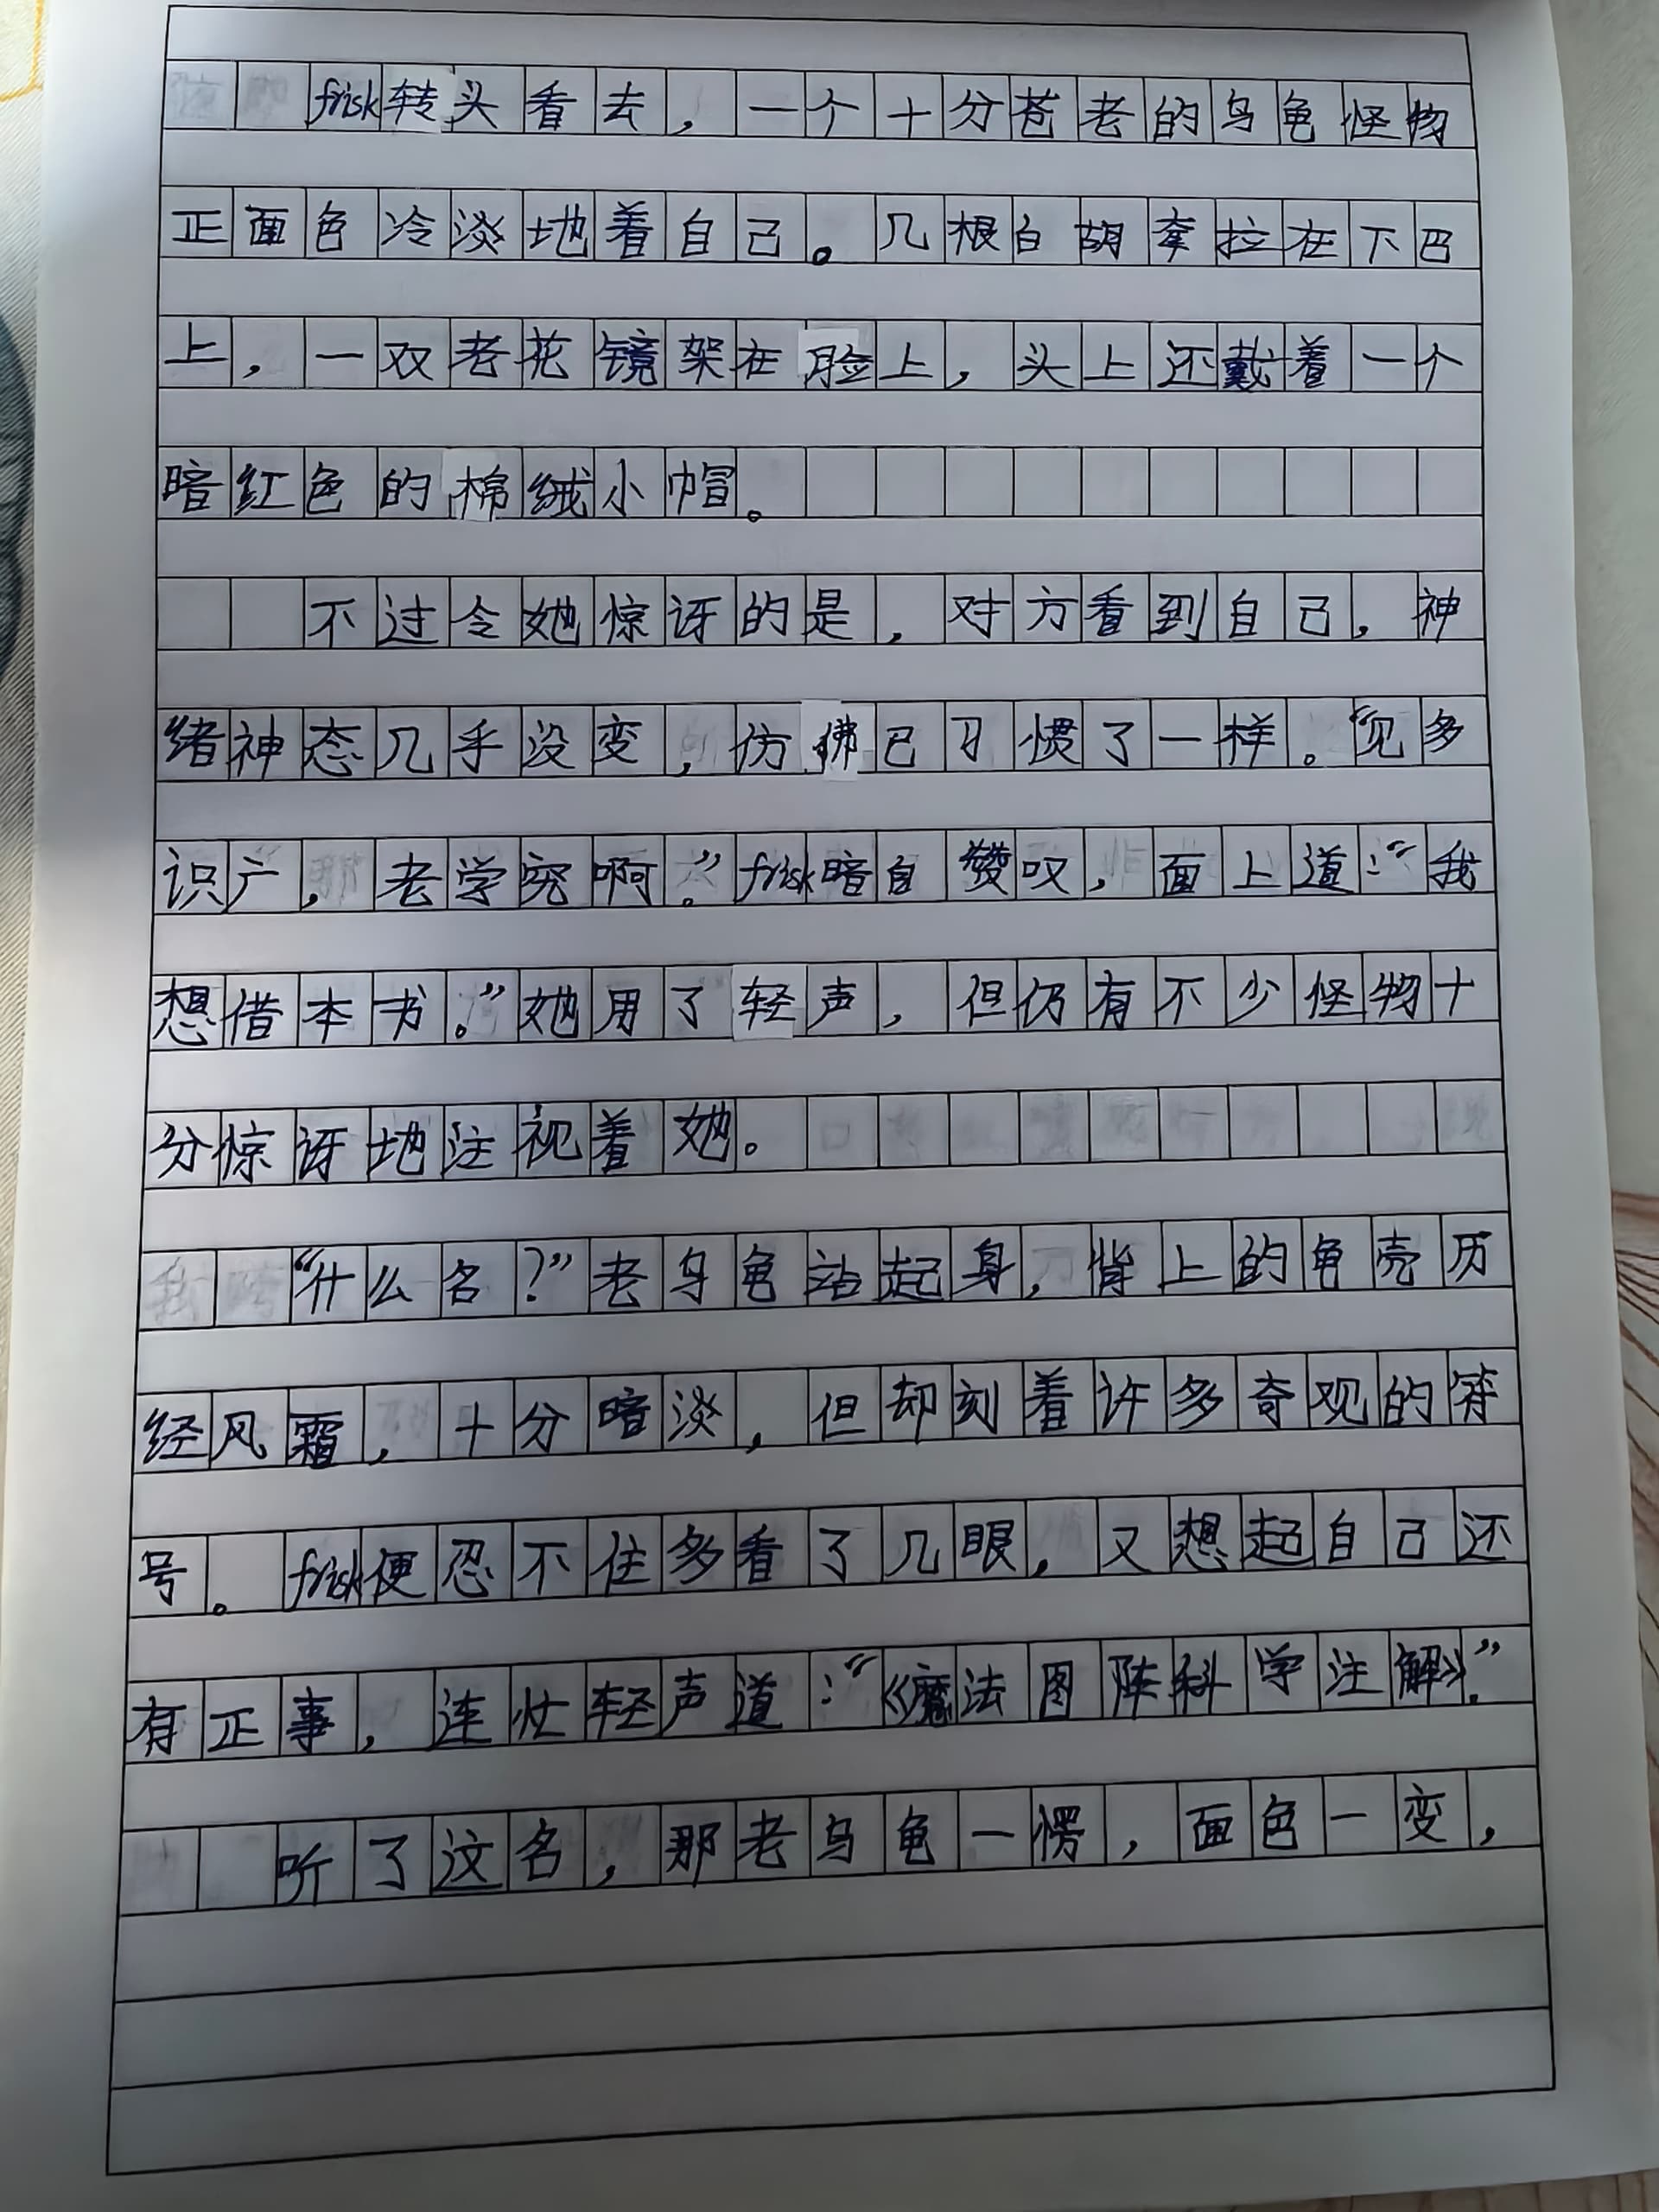 frisk转头看去，一个十分苍老的乌龟怪物
正面色冷淡地着自己。几根白胡耷拉在下巴
上，一双老花镜架在脸上，头上还戴着一个
暗红色的棉绒小帽。
不过令她惊讶的是，对方看到自己，神
绪神态几乎没变，仿佛已习惯了一样。“见多
识广，老学究啊。”frisk暗自赞叹，面上道：“我
想借本书。”她用了轻声，但仍有不少怪物十
分惊讶地注视着她。
“什么名？”老乌龟站起身，背上的龟壳历
经风霜，十分暗淡，但却刻着许多奇观的符
号。frisk便忍不住多看了几眼，又想起自己还
有正事，连忙轻声道：“《魔法图阵科学注解》.”
听了这名，那老乌龟一愣，面色一变，